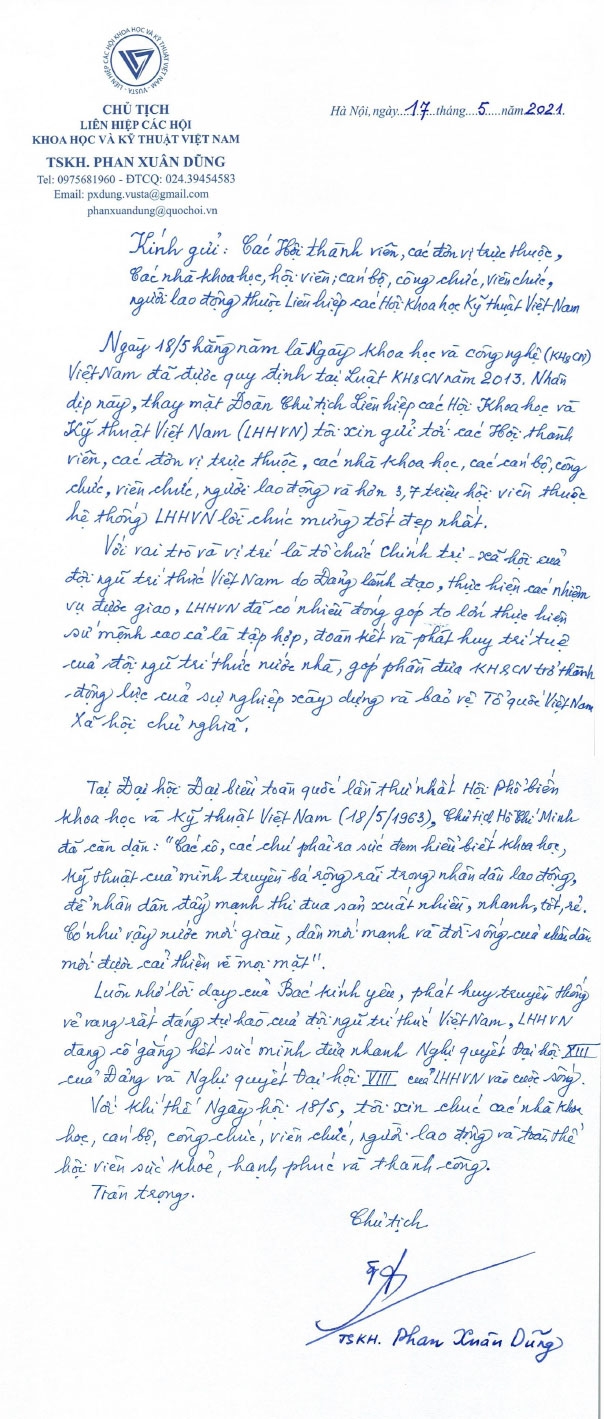 LIÊN HIỆP CÁC HỘI KHOA HỌC VÀ KỸ THUẬT VIỆT NAM - VUSTA
CHỦ TỊCH
LIÊN HIỆP CÁC HỘI
KHOA HỌC VÀ KỸ THUẬT VIỆT NAM
TSKH. PHAN XUÂN DŨNG
Tel: 0975681960 - ĐTCQ: 024.39454583
Email: pxdung.vusta@gmail.com
phanxuandung@quochoi.vn
Hà Nội, ngày....17....tháng....5....năm 2021
Kính gửi: Các Hội thành viên, các đơn vị trực thuộc,
Các nhà khoa học, hội viên; cán bộ, công chức, viên chức,
người lao động thuộc Liên hiệp các Hội Khoa học Kỹ thuật Việt Nam
Ngày 18/5 hằng năm là Ngày khoa học và công nghệ (KH&CN)
Việt Nam đã được quy định tại Luật KH&CN năm 2013. Nhân
dịp này, thay mặt Đoàn Chủ tịch Liên hiệp các Hội Khoa học và
Kỹ thuật Việt Nam (LHHVN) tôi xin gửi tới các Hội thành
viên, các đơn vị trực thuộc, các nhà khoa học, các cán bộ, công
chức, viên chức, người lao động và hơn 3,7 triệu hội viên thuộc
hệ thống LHHVN lời chúc mừng tốt đẹp nhất.
Với vai trò và vị trí là tổ chức chính trị - xã hội của
đội ngũ trí thức Việt Nam do Đảng lãnh đạo, thực hiện các nhiệm
vụ được giao, LHHVN đã có nhiều đóng góp to lớn thực hiện
sứ mệnh cao cả là tập hợp, đoàn kết và phát huy trí tuệ
của đội ngũ trí thức nước nhà, góp phần đưa KH&CN trở thành
động lực của sự nghiệp xây dựng và bảo vệ Tổ quốc Việt Nam
Xã hội chủ nghĩa.
Tại Đại hội Đại biểu toàn quốc lần thứ nhất Hội Phổ biến
khoa học và Kỹ thuật Việt Nam (18/5/1963), Chủ tịch Hồ Chí Minh
đã căn dặn: "Các cô, các chú phải ra sức đem hiểu biết khoa học,
kỹ thuật của mình truyền bá rộng rãi trong nhân dân lao động,
để nhân dân đẩy mạnh thi đua sản xuất nhiều, nhanh, tốt, rẻ.
Có như vậy nước mới giàu, dân mới mạnh và đời sống của nhân dân
mới được cải thiện về mọi mặt".
Luôn nhớ lời dạy của Bác kính yêu, phát huy truyền thống
vẻ vang rất đáng tự hào của đội ngũ trí thức Việt Nam, LHHVN
đang cố gắng hết sức mình đưa nhanh Nghị quyết Đại hội XIII
của Đảng và Nghị quyết Đại hội VIII của LHHVN vào cuộc sống.
Với khí thế Ngày hội 18/5, tôi xin chúc các nhà khoa
học, cán bộ, công chức, viên chức, người lao động và toàn thể
hội viên sức khoẻ, hạnh phúc và thành công.
Trân trọng.
Chủ tịch
TSKH. Phan Xuân Dũng